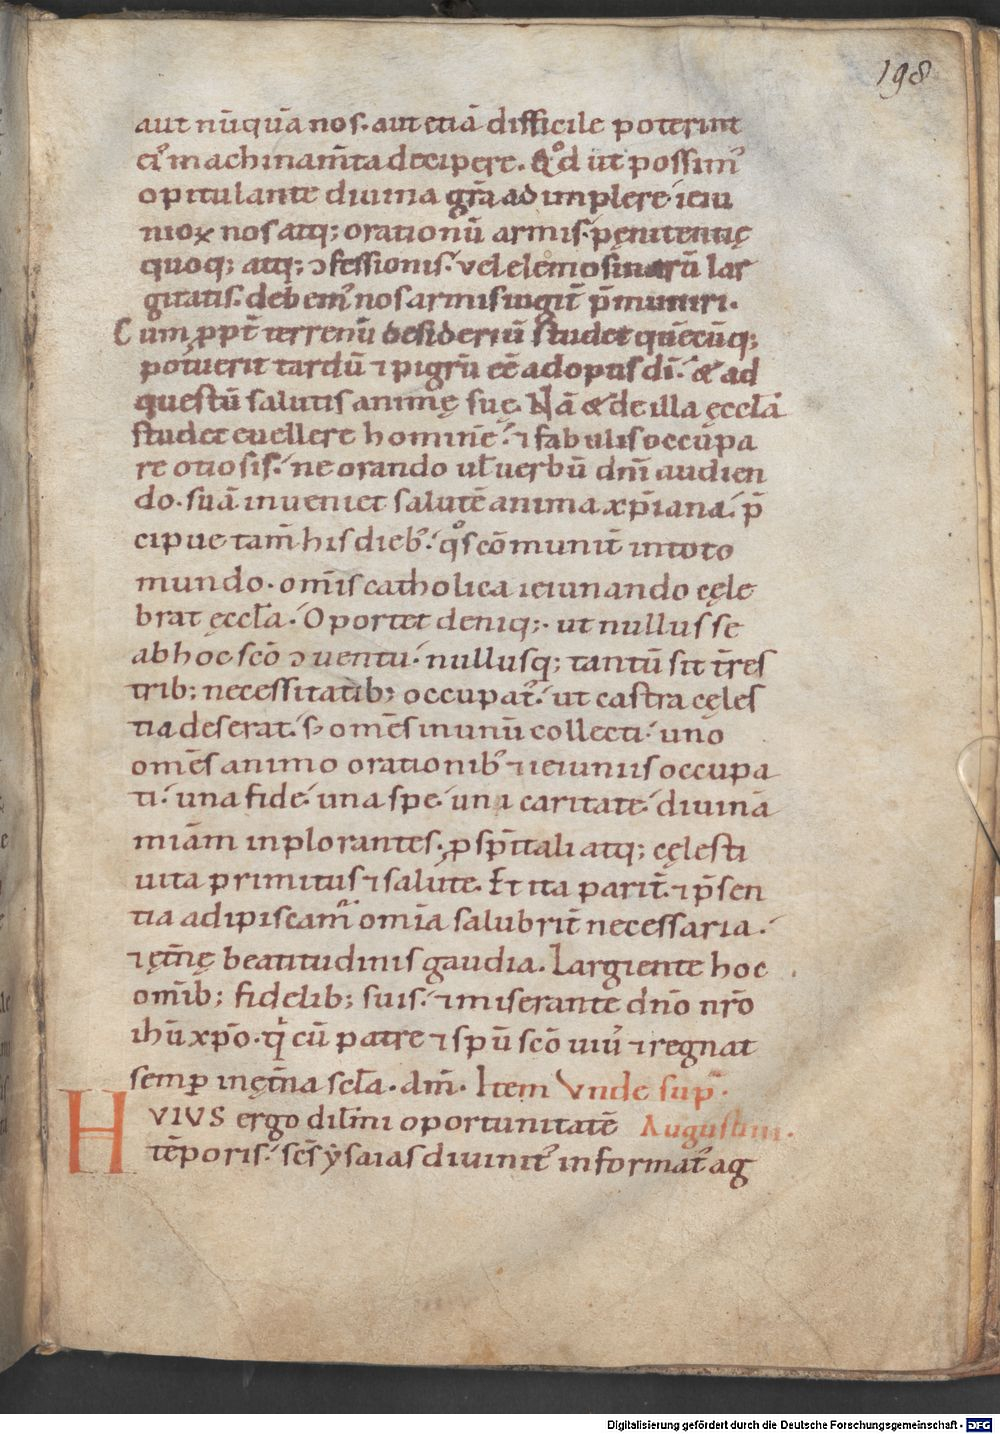 198
aut nūquā nos. aut etiā difficile poterint
ei᾽ machinam̄ta decipere. Qͦd ut possim᾽
opitulante diuina gr̄a adimplere. ieiu
nioꝝ nos atq; orationū armis. pęnitentię
quoq; atq; ↄfessionis. uel elemosinarū lar
gitatis. debem᾽ nos armis iugit̄ p̄muniri.
Cum ꝓpt̄ terrenū desideriū studet quēcūq;
potuerit tardū ⁊ pigrū eē ad opus dī. & ad
questū salutis animę suę. Nā & de illa ęccl̄a
studet euellere hominē. ⁊ fabulis occupa
re otiosis. ne orando ul̄ uerbū dn̄i audien
do. suā inueniet salutē anima xp̄iana. p̄
cipue tam̄ his dieb᾽. qͦs cōmunit̄ in toto
mundo. om̄is catholica ieiunando cęle
brat ęccl̄a. Oportet deniq;. ut nullus se
ab hoc sc̄o ↄuentu. nullusq; tantū sit t̄res
trib; necessitatib; occupat᾽. ut castra cęles
tia deserat. s; om̄es in unū collecti. uno
om̄es animo orationib᾽ ⁊ ieiuniis occupa
ti. una fide. una spe. una caritate. diuinā
miām inplorantes. ꝓ sp̄itali atq; cęlesti
uita primitus ⁊ salute. Et ita parit̄. ⁊ p̄sen
tia adipiscam᾽ om̄ia salubrit̄ necessaria.
⁊ ęt̄nę beatitudinis gaudia. Largiente hoc
om̄ib; fidelib; suis. ⁊ miserante dn̄o nr̄o
ihū xp̄o. qⁱ cū patre ⁊ sp̄u sc̄o uiu᾽ ⁊ regnat
semꝑ in ęt̄na scl̄a. am̄. Item Vnde sup̄.
HVIVS ergo dil̄mi oportunitatē Augustini.
tēporis. sc̄s ẏsaias diuinit᾽ informat᾽ ag
Digitalisierung gefördert durch die Deutsche Forschungsgemeinschaft - DFG